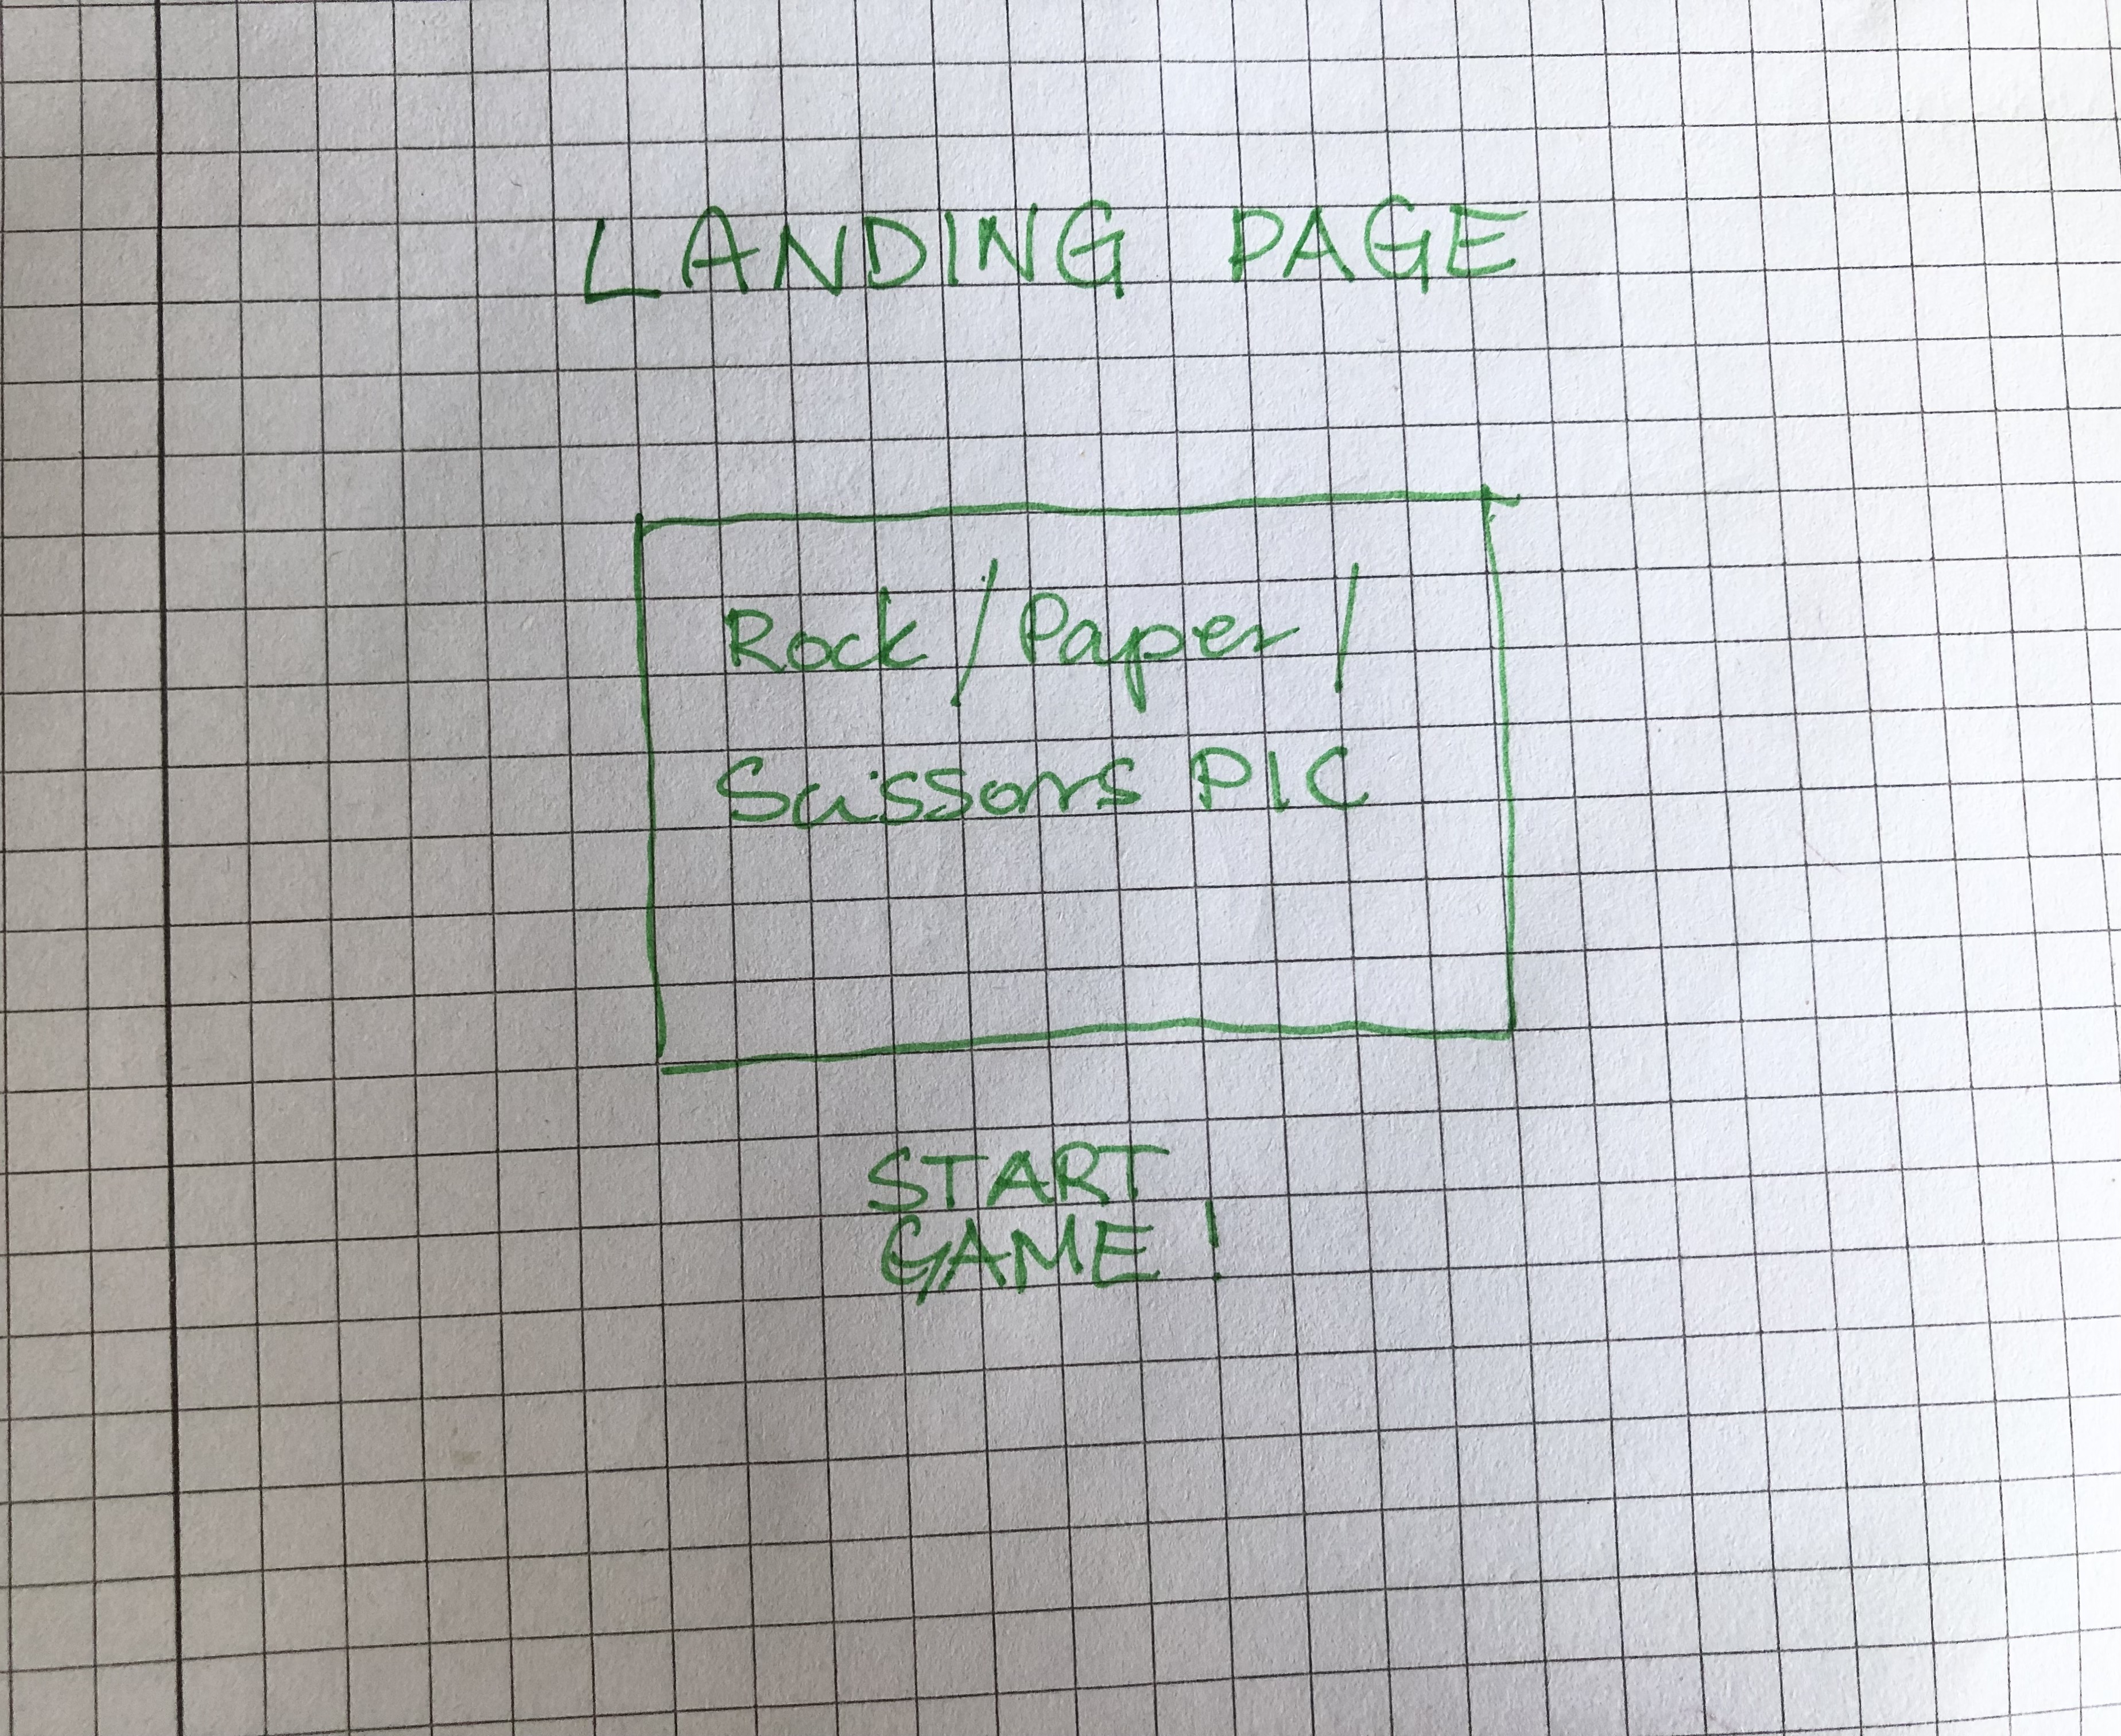 LANDING PAGE
Rock / Paper /
Scissors PIC
START
GAME !